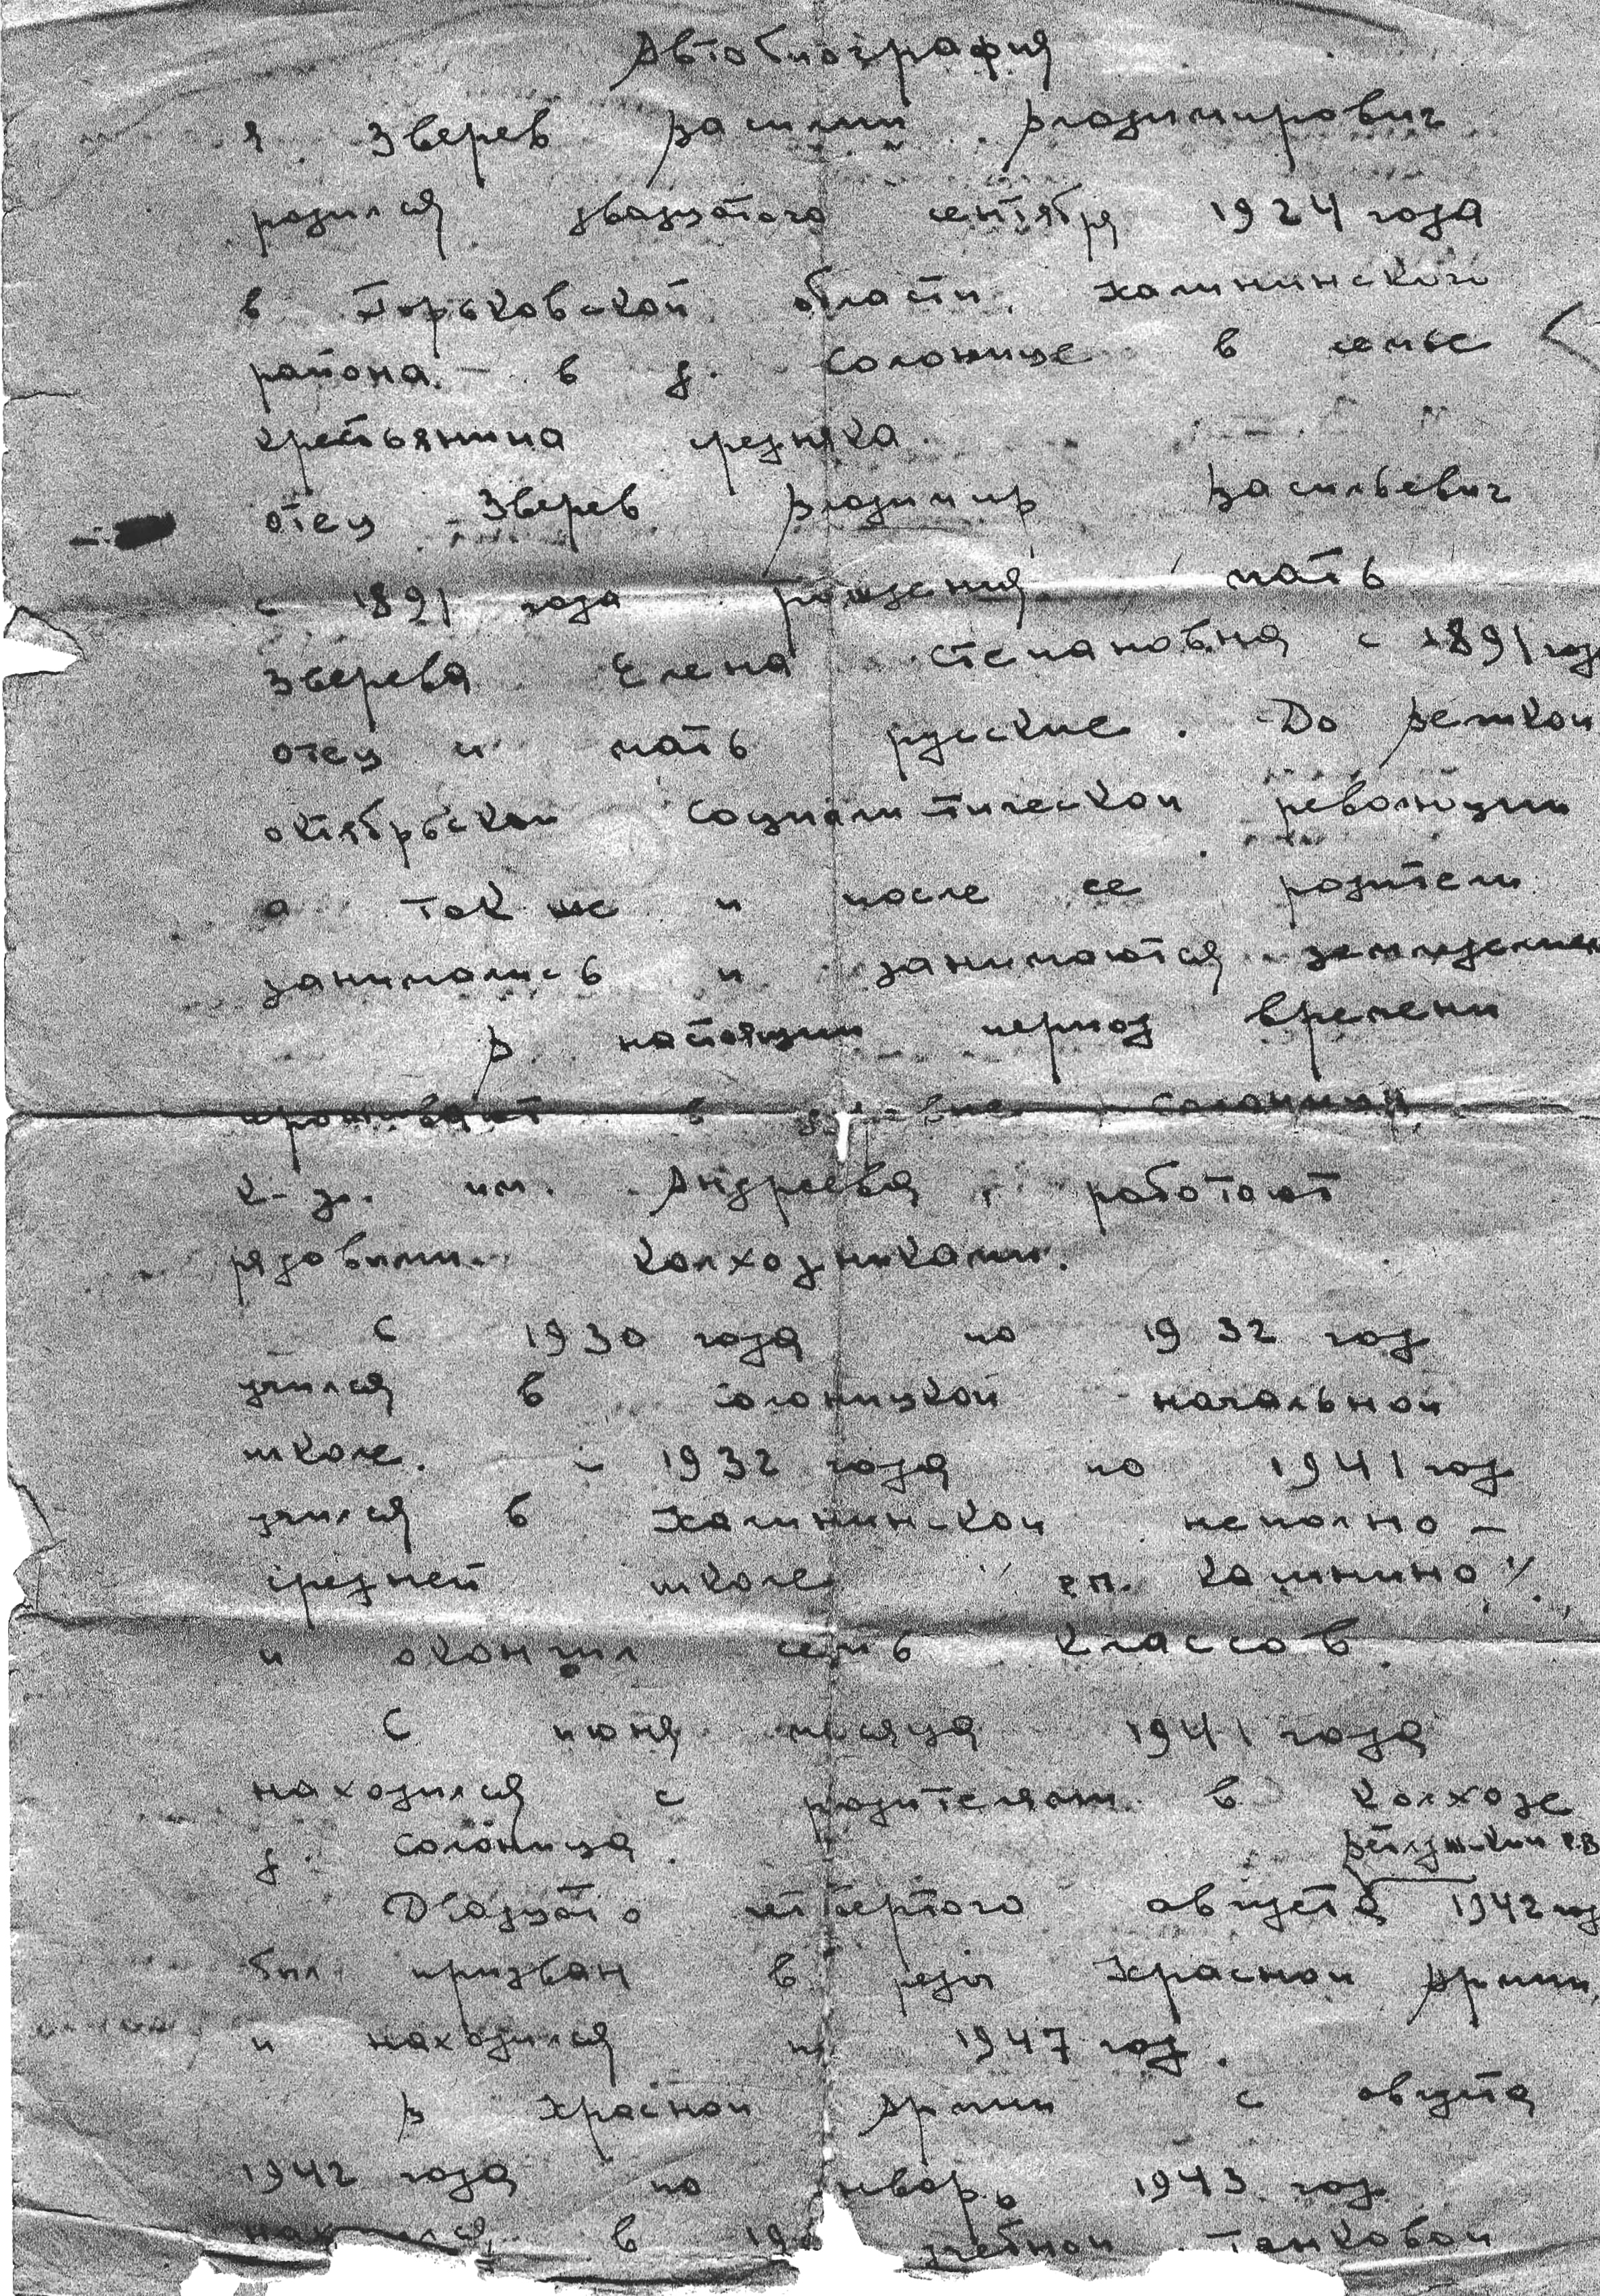 Автобиография
я Зверев Василии Владимирович
родился двадцатого сентября 1924 года
в Горьковской области, Калининского
района. в д. Солонице в семье
крестьянина средняка.
отец Зверев Владимир Васильевич
с 1891 года рождения мать
Зверева Елена Степановна с 1891 года
отец и мать русские. До Великои
октябрьскои социалитическои революции
а так же и после ее родители
занимались и занимаются земледелием
В настоящии период времени
проживают в Солоници
к-з. им. Андреева, работают
рядовыми колхозниками.
С 1930 года по 1932 год
учился в Солоницкои начальнои
школе. с 1932 года по 1941 год
учился в Калининскои неполно-
средней школе рп. Калинино"/.
и окончил семь классов.
С июня месяца 1941 года
находился с родителями в колхозе
д. Солоница.
Ветлужскии Р.В
Двадцать четвертого августа 1942 год
был призван в реды Краснои Армии,
и находился по 1947 год.
В Краснои Армии с августа
1942 года по январь 1943 год
в учебнои танковои